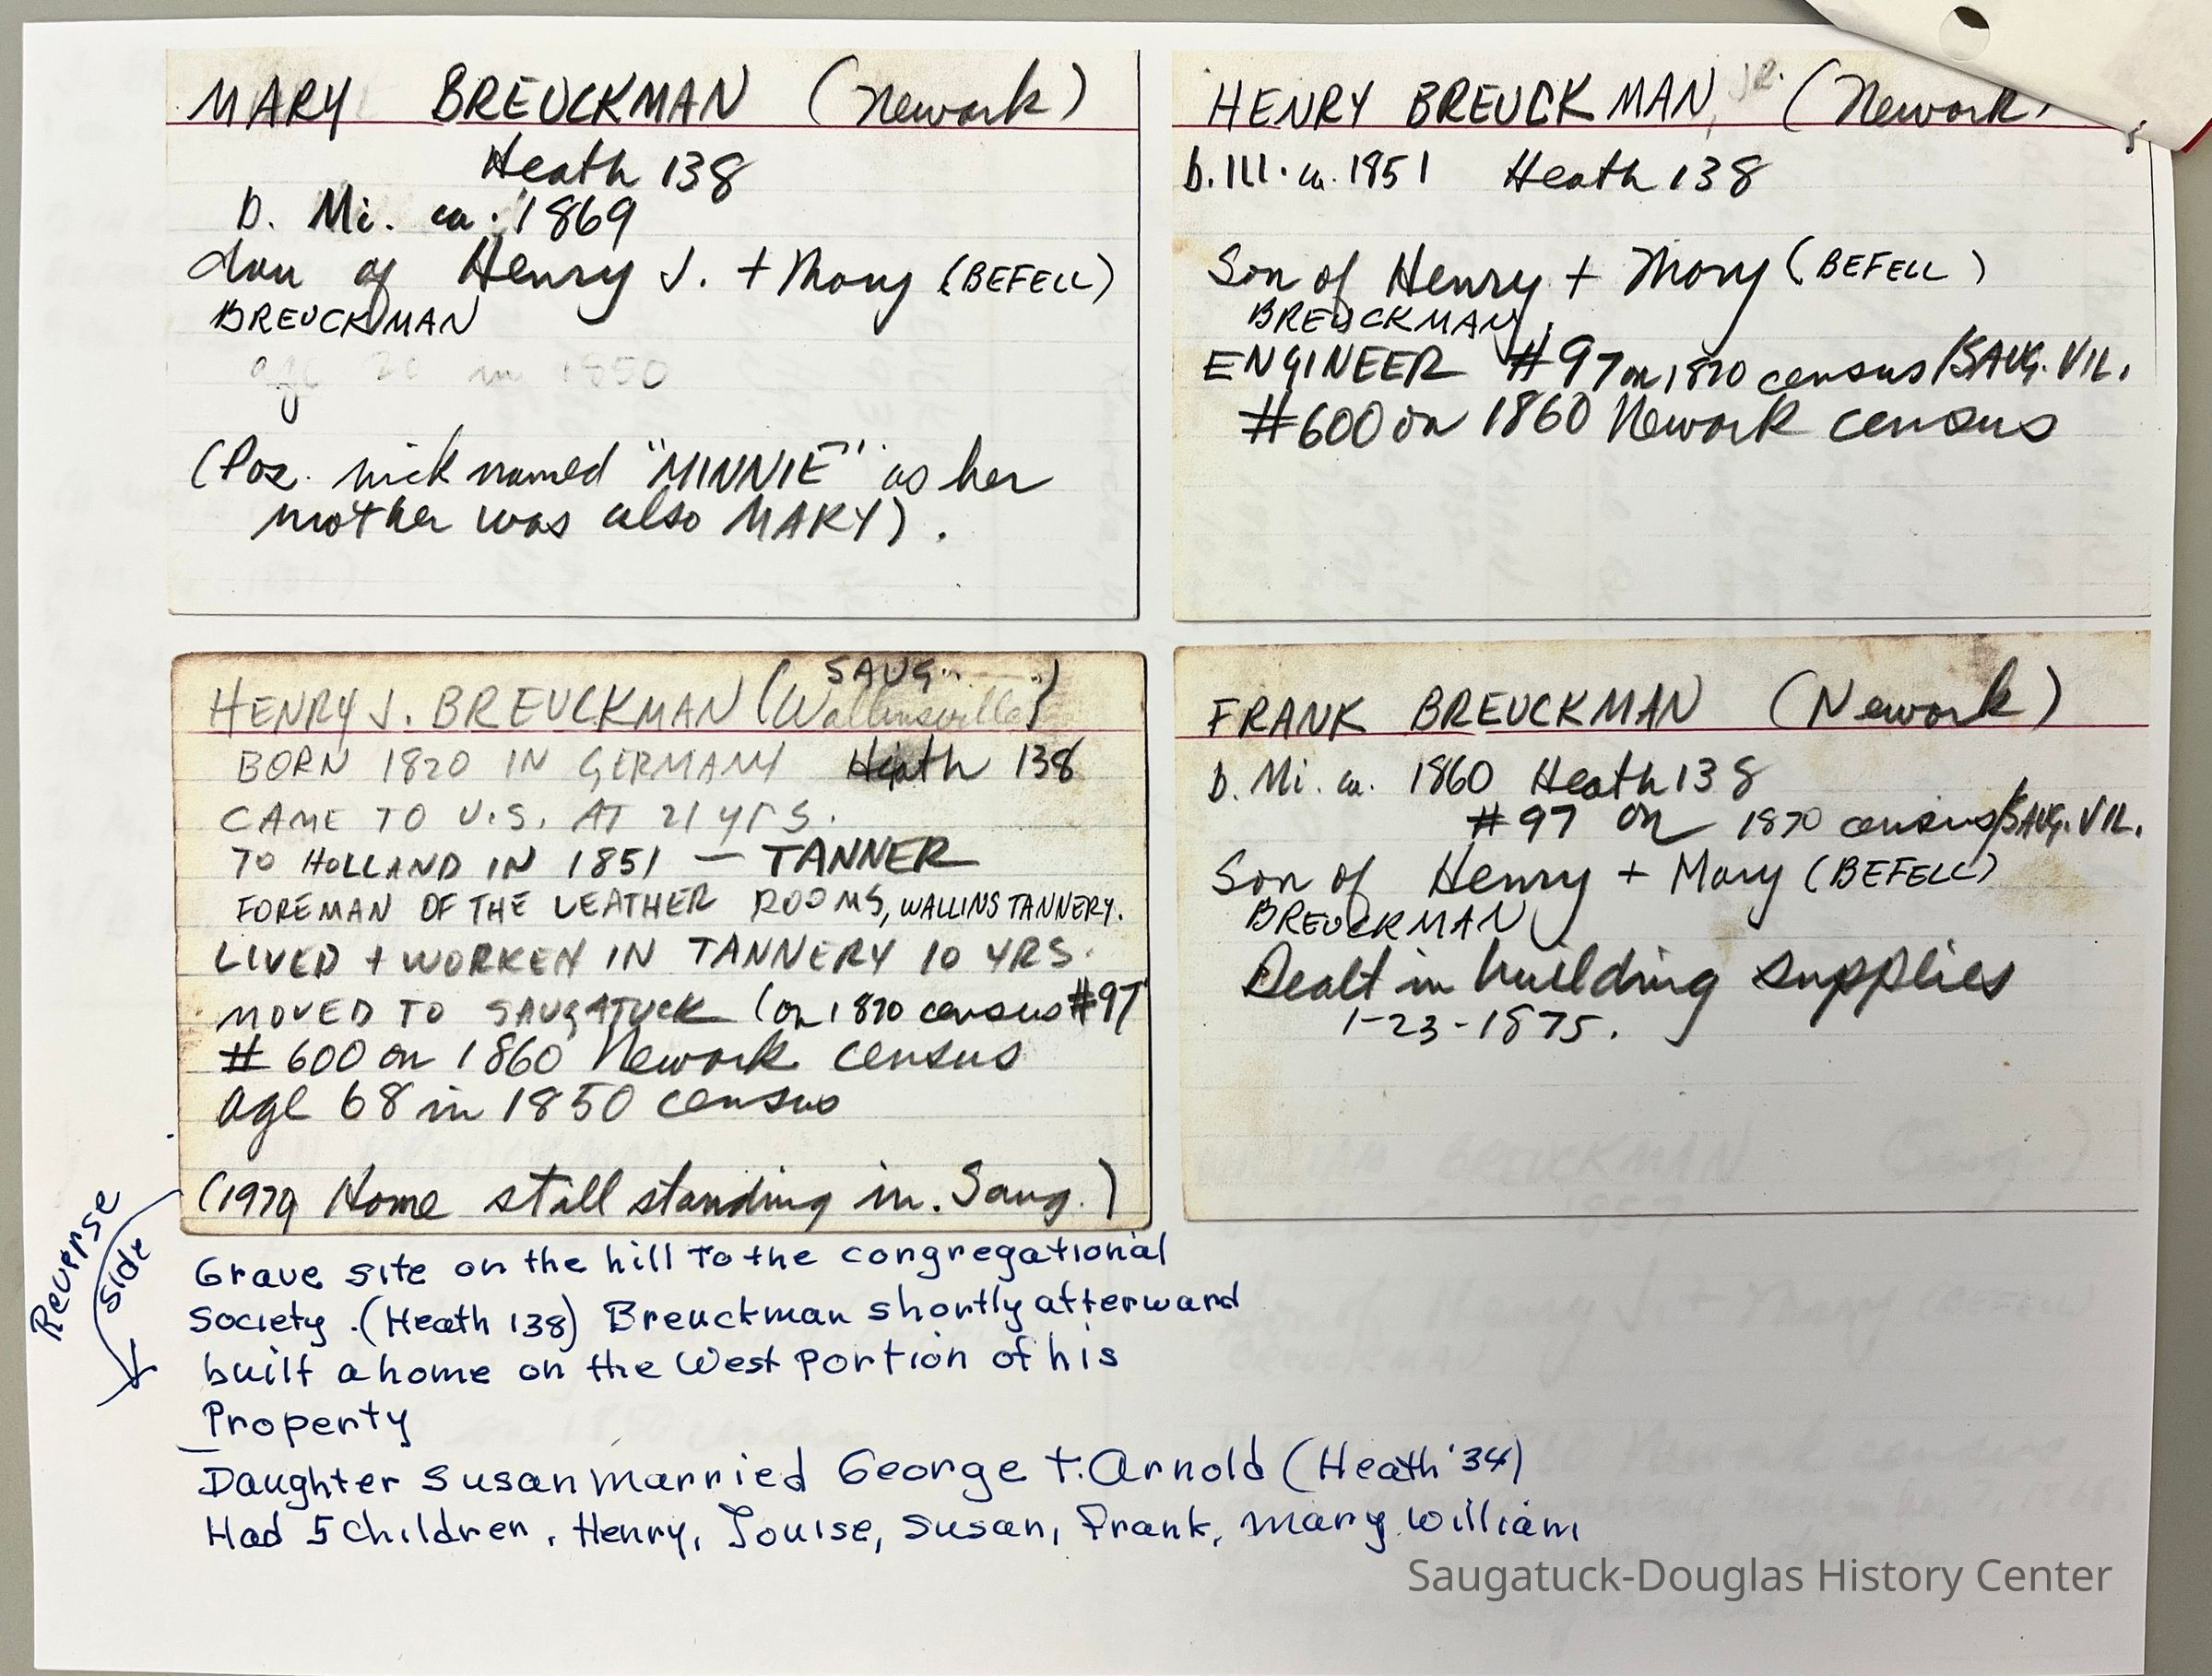 MARY BREUCKMAN (Newark)
Heath 138
b. Mi. ca. 1869
dau of Henry J. + Mary (BEFELL)
BREUCKMAN
age 20 in 1850
(Pos. nicknamed "MINNIE" as her
mother was also MARY).
HENRY BREUCKMAN, JR. (Newark)
b. Ill. ca. 1851 Heath 138
Son of Henry + Mary (BEFELL)
BREUCKMAN
ENGINEER #97 on 1870 census/SAUG. VIL.
#600 on 1860 Newark census
SAUG.
HENRY J. BREUCKMAN (Wallinsville)
BORN 1820 IN GERMANY Heath 138
CAME TO U.S. AT 21 yrs.
TO HOLLAND IN 1851 — TANNER
FOREMAN OF THE LEATHER ROOMS, WALLINS TANNERY.
LIVED + WORKEN IN TANNERY 10 YRS.
MOVED TO SAUGATUCK (on 1870 census #97
# 600 on 1860 Newark census
age 68 in 1850 census
(1979 Home still standing in Saug.)
FRANK BREUCKMAN (Newark)
b. Mi. ca. 1860 Heath 138
#97 on 1870 census/SAUG. VIL.
Son of Henry + Mary (BEFELL)
BREUCKMAN
Dealt in building supplies
1-23-1875.
Reverse
side
Grave site on the hill to the congregational
Society. (Heath 138) Breuckman shortly afterward
built a home on the West portion of his
Property
Daughter Susan married George t. Arnold (Heath '34)
Had 5 children. Henry, Louise, Susan, Frank, Mary William
Saugatuck-Douglas History Center